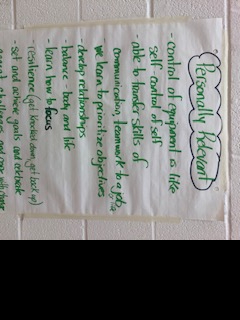 Personally Relevant
- control of equipment is like
self control of self
- able to transfer skills of
communication, teamwork to a job
- we learn to prioritize objectives
- develop relationships
- balance - body and life
- learn how to focus
resilience (get knocked down, get back up)
set and achieve goals and celebrate